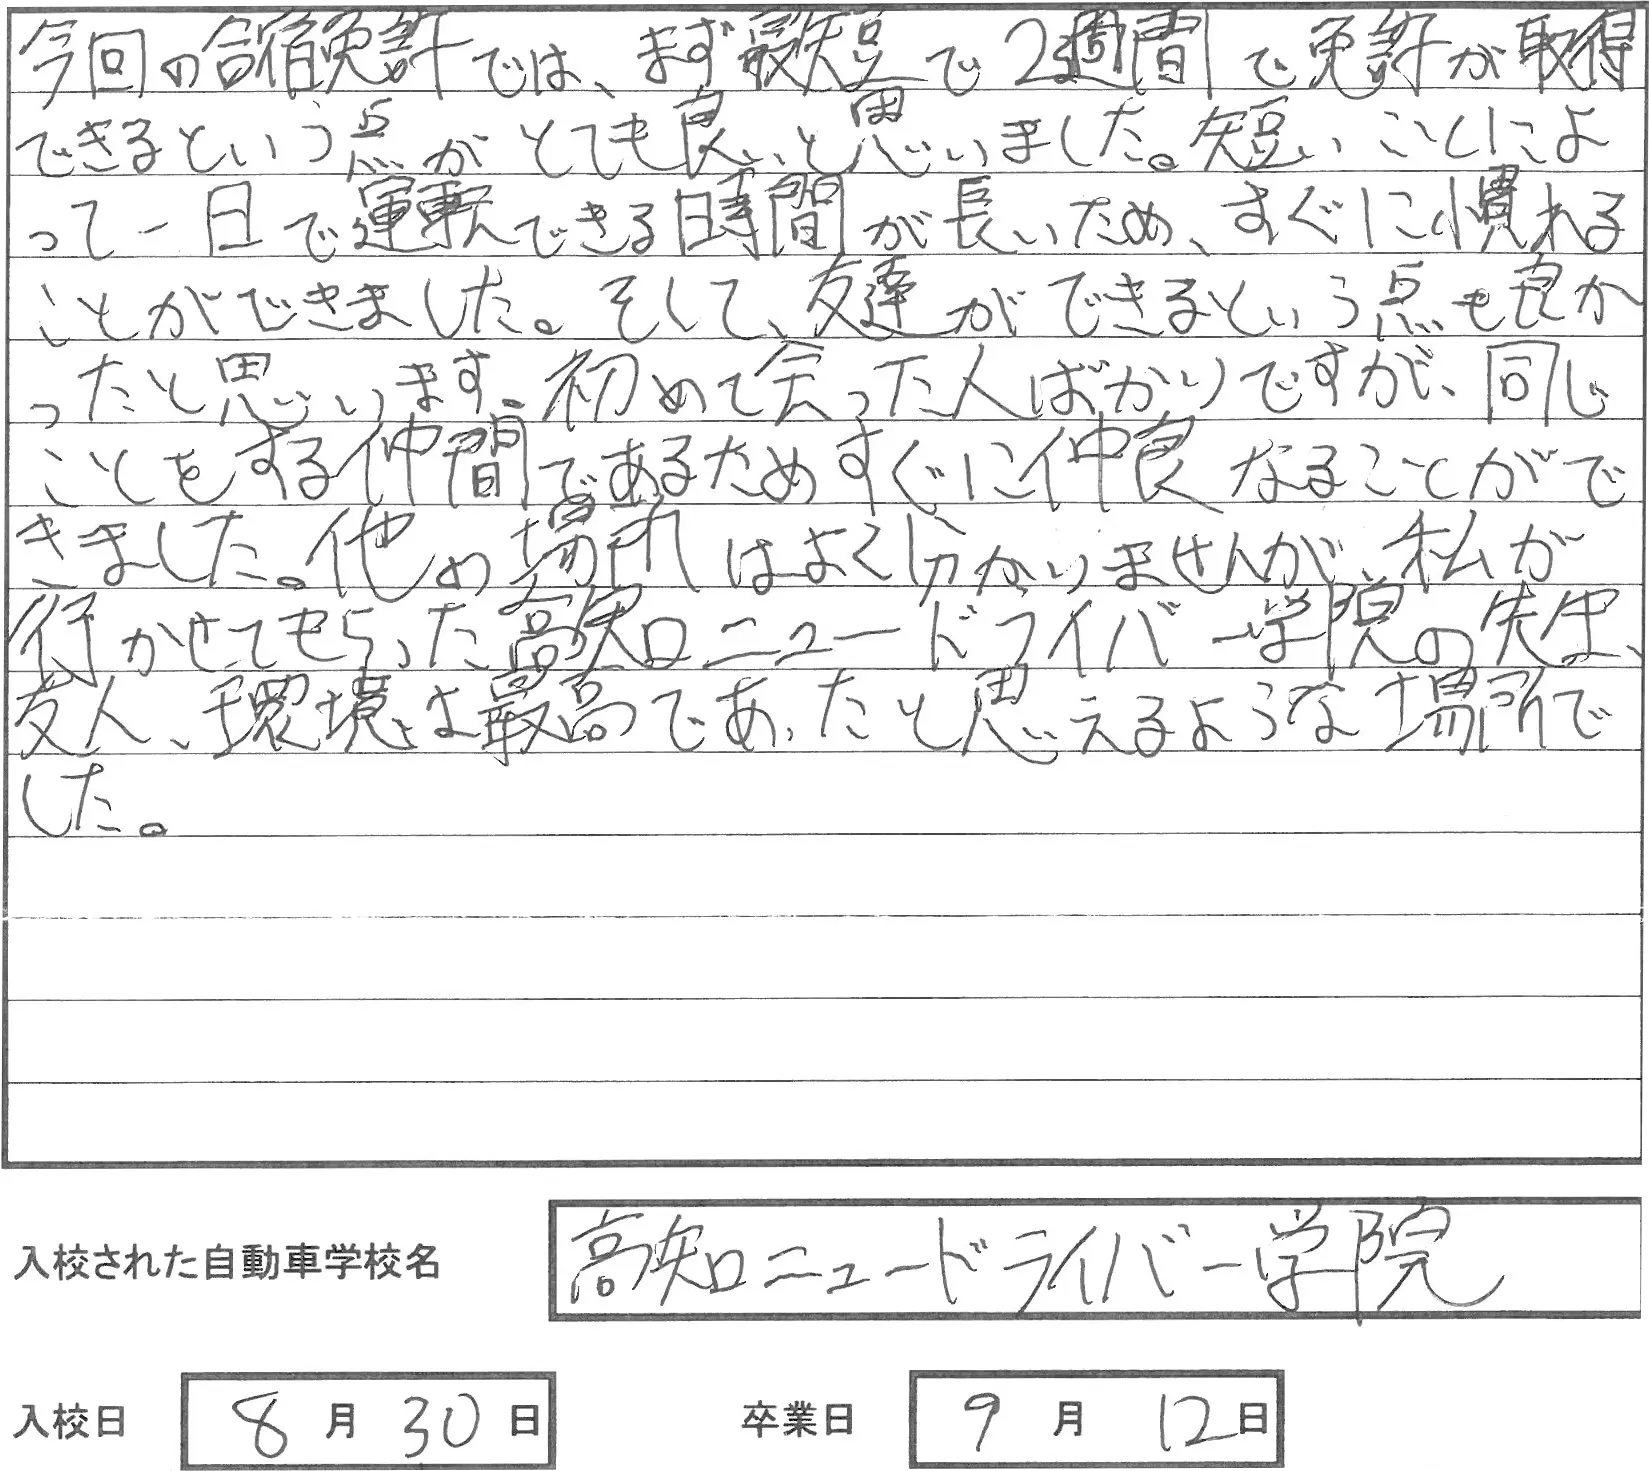 今回の合宿免許では、まず最短で2週間で免許が取得
できるという点がとても良いと思いました。短いことによ
って一日で運転できる時間が長いため、すぐに慣れる
ことができました。そして、友達ができるという点も良か
ったと思います。初めて会った人ばかりですが、同じ
ことをする仲間であるためすぐに仲良なることがで
きました。他の場所はよく分かりませんが、私が
行かせてもらった高知ニュードライバー学院の先生、
友人、環境は最高であったと思えるような場所で
した。
入校された自動車学校名 高知ニュードライバー学院
入校日 8月30日 卒業日 9月12日